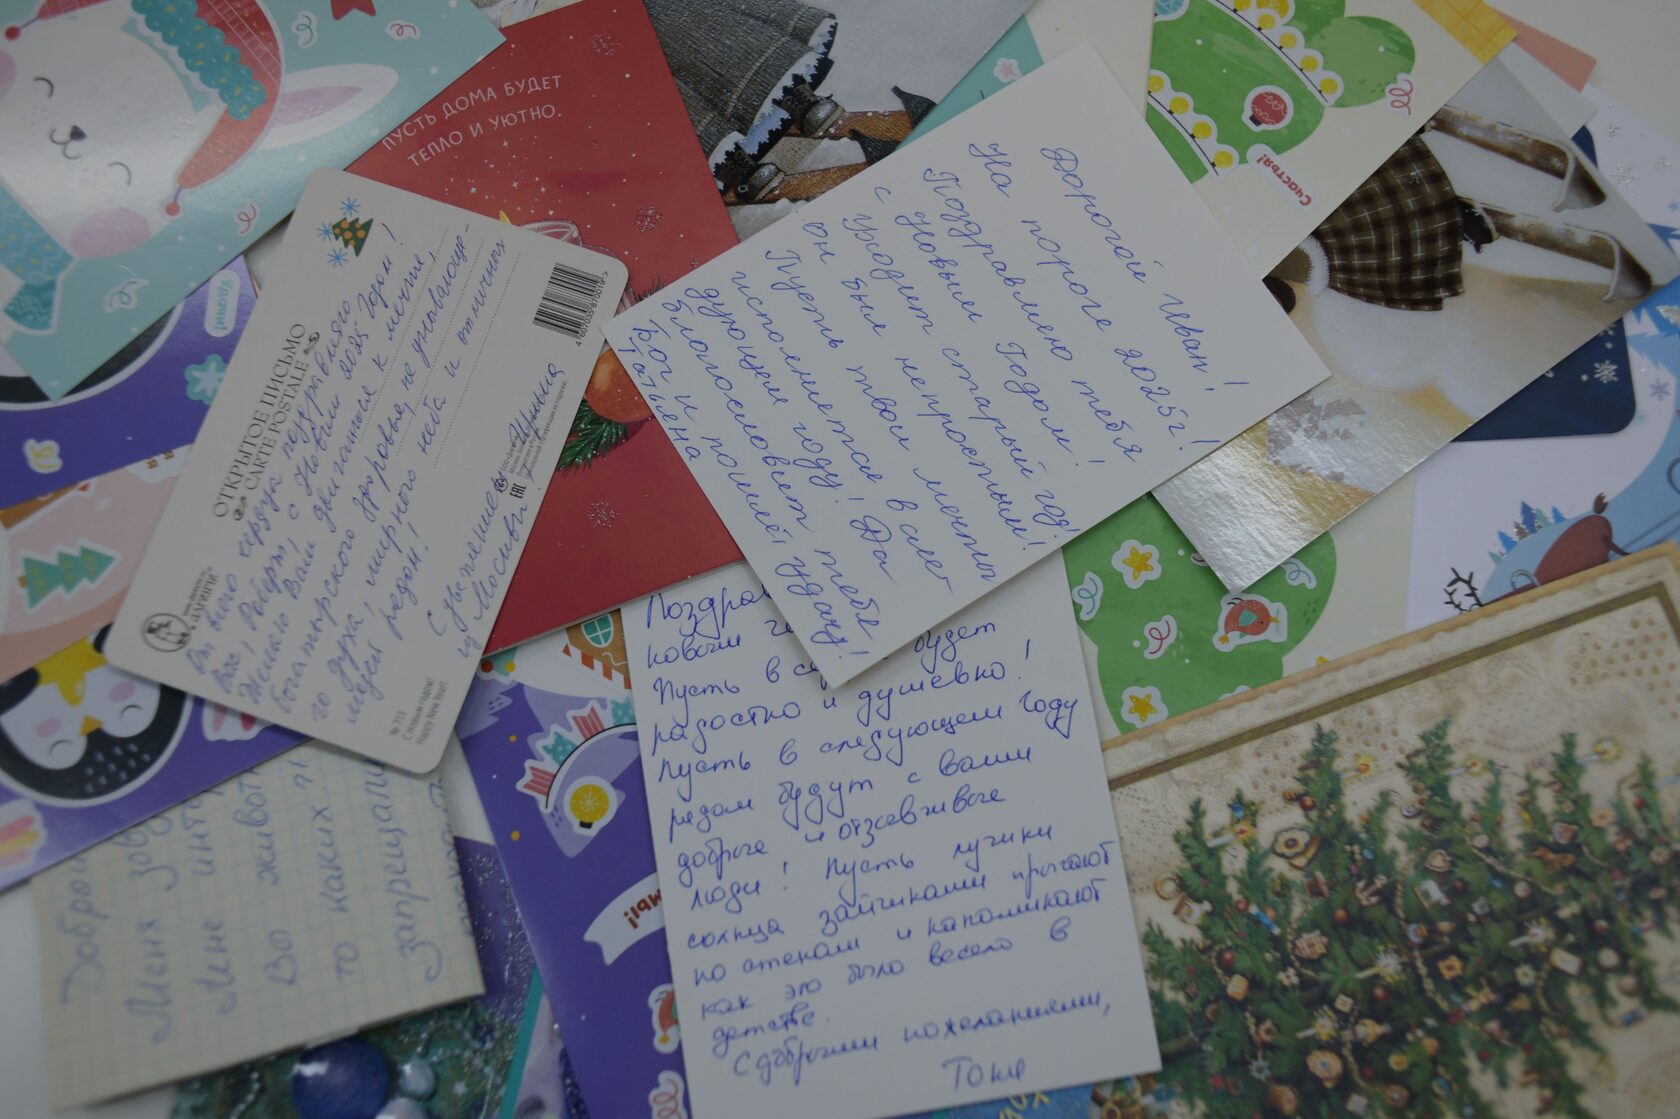 ПУСТЬ ДОМА БУДЕТ
ТЕПЛО И УЮТНО.
Счастья!
Удачи!
ОТКРЫТОЕ ПИСЬМО
CARTE POSTALE
От всего сердца поздравляю
Вас, Роберт, с Новым 2025 Годом!
Желаю Вам двигаться к мечте,
богатырского здоровья, не унывающе-
го духа, мирного неба и отличных
людей рядом!
С уважением, Ирина
из Москвы.
№ 713
С Новым годом!
Happy New Year!
4607035870019
Дорогой Иван!
На пороге 2025г!
Поздравляю тебя
с Новым Годом!
Уходит старый год!
он был непростым!
Пусть твои мечты
исполняется в след
дующем году! Да
благословет тебя
Бог и пошлёт удачу!
Татьяна
Поздрав
новым г
Пусть в с будет
радостно и душевно!
Пусть в следующем году
рядом будут с вами
добрые и отзывчивые
люди! Пусть лучики
солнца зайчиками прыгают
по стенам и напоминают
как это было весело в
детстве.
С добрыми пожеланиями,
Тоня
Доброй
Меня зов
Мне инт
Вы живот
то каких?!
запрещали